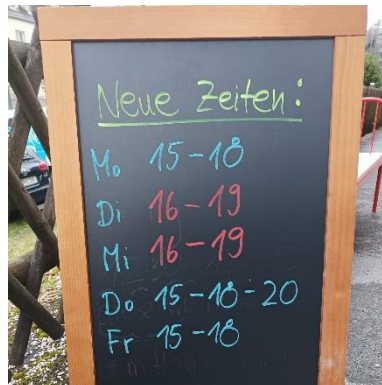 Neue Zeiten:
Mo 15-18
Di 16-19
Mi 16-19
Do 15-18-20
Fr 15-18